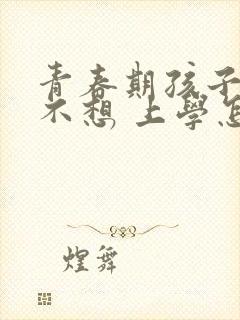 青春期孩子
不想上學怎
煌舞